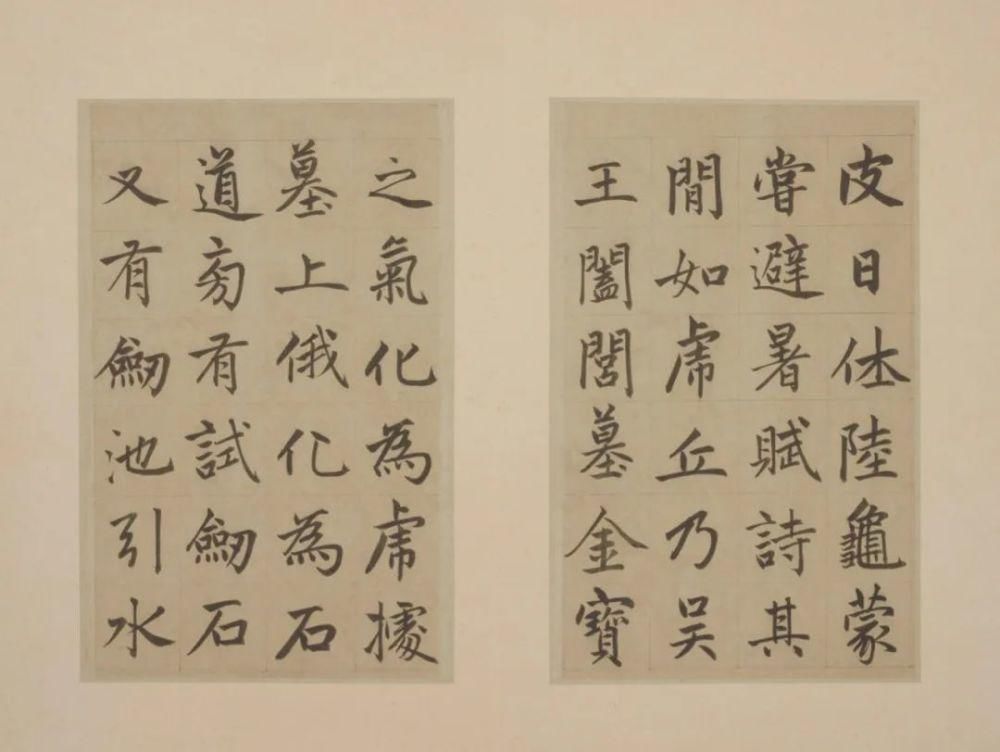 皮日休陸龜蒙
嘗避暑賦詩其
閒如虎丘乃吴
王闔閭墓金寶
之氣化為虎據
墓上俄化為石
道旁有試劒石
又有劒池引水